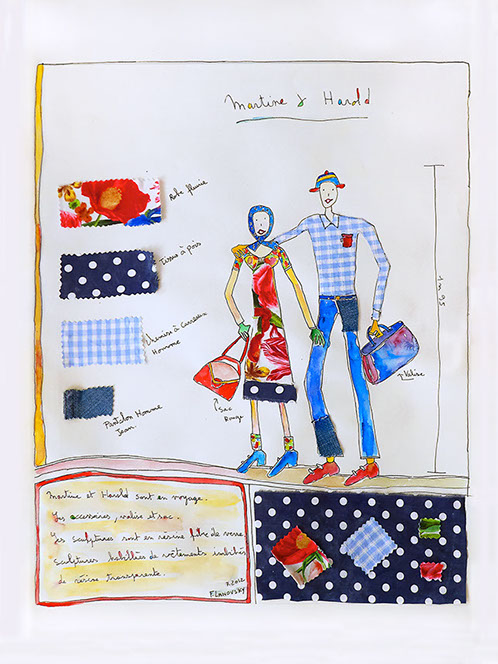 Martine & Harold
Robe fleurie
Tissus à pois
Chemise à carreaux
Homme
Pantalon Homme
Jean.
Sac
Rouge
Valise
1m95
Martine et Harold sont en voyage.
Les accessoires, valise et sac.
Les sculptures sont en résine fibre de verre.
Sculptures habillées de vêtements imbibés
de résine transparente.